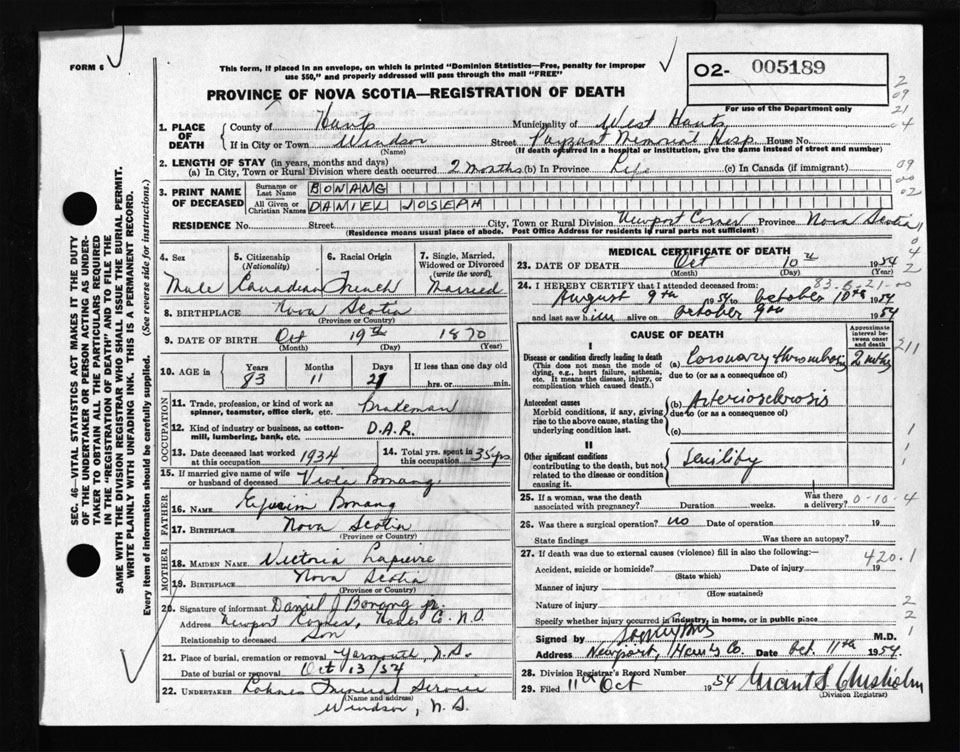 FORM 6
This form, if placed in an envelope, on which is printed "Dominion Statistics—Free, penalty for improper
use $50," and properly addressed will pass through the mail "FREE"
PROVINCE OF NOVA SCOTIA—REGISTRATION OF DEATH
O2- 005189
For use of the Department only
2
09
21
04
1. PLACE OF DEATH
County of Hants Municipality of West Hants
If in City or Town Windsor Street Payzant Memorial Hosp. House No.
(Name) (If death occurred in a hospital or institution, give the name instead of street and number)
2. LENGTH OF STAY (in years, months and days)
(a) In City, Town or Rural Division where death occurred 2 months (b) In Province Life (c) In Canada (if immigrant)
09
00
02
3. PRINT NAME OF DECEASED
Surname or Last Name BONANG
All Given or Christian Names DANIEL JOSEPH
RESIDENCE No. Street City, Town or Rural Division Newport Corner Province Nova Scotia
(Residence means usual place of abode. Post Office Address for residents in rural parts not sufficient)
SEC. 46—VITAL STATISTICS ACT MAKES IT THE DUTY
OF THE UNDERTAKER OR PERSON ACTING AS UNDER-
TAKER TO OBTAIN ALL THE PARTICULARS REQUIRED
IN THE "REGISTRATION OF DEATH" AND TO FILE THE
SAME WITH THE DIVISION REGISTRAR WHO SHALL ISSUE THE BURIAL PERMIT.
WRITE PLAINLY WITH UNFADING INK. THIS IS A PERMANENT RECORD.
Every item of information should be carefully supplied. (See reverse side for instructions.)
4. Sex
Male
5. Citizenship
(Nationality)
Canadian
6. Racial Origin
French
7. Single, Married,
Widowed or Divorced
(write the word)
Married
8. BIRTHPLACE Nova Scotia
(Province or Country)
9. DATE OF BIRTH Oct 19th 1870
(Month) (Day) (Year)
10. AGE in Years Months Days If less than one day old
83 11 21 hrs. or min.
OCCUPATION
11. Trade, profession, or kind of work as
spinner, teamster, office clerk, etc. Brakeman
12. Kind of industry or business, as cotton-
mill, lumbering, bank, etc. D.A.R.
13. Date deceased last worked
at this occupation 1934
14. Total yrs. spent in
this occupation 35 yrs.
15. If married give name of wife
or husband of deceased Viola Bonang
FATHER
16. NAME Bonang
17. BIRTHPLACE Nova Scotia
(Province or Country)
MOTHER
18. MAIDEN NAME Victoria Lapierre
19. BIRTHPLACE Nova Scotia
(Province or Country)
20. Signature of informant Daniel J Bonang jr.
Address Newport Corner, Hants Co. N.S.
Relationship to deceased Son
21. Place of burial, cremation or removal Yarmouth, N.S.
Date of burial or removal Oct 13/54
22. UNDERTAKER Funeral Service
(Name and address)
Windsor, N.S.
MEDICAL CERTIFICATE OF DEATH
23. DATE OF DEATH Oct 10th 1954
(Month) (Day) (Year)
83-8-21-00
24. I HEREBY CERTIFY that I attended deceased from:
August 9th 1954 to October 10th 1954
and last saw him alive on October 9th 1954
CAUSE OF DEATH
Approximate interval between onset and death
I
Disease or condition directly leading to death
(This does not mean the mode of
dying, e.g., heart failure, asthenia,
etc. It means the disease, injury, or
complication which caused death.)
(a) Coronary thrombosis 2 mths
due to (or as a consequence of)
Antecedent causes
Morbid conditions, if any, giving
rise to the above cause, stating the
underlying condition last.
(b) Arteriosclerosis
due to (or as a consequence of)
(c)
II
Other significant conditions
contributing to the death, but not
related to the disease or condition
causing it.
Senility
25. If a woman, was the death
associated with pregnancy? Duration weeks. Was there a delivery?
0-10-4
26. Was there a surgical operation? no Date of operation 19
State findings Was there an autopsy?
27. If death was due to external causes (violence) fill in also the following:—
420.1
Accident, suicide or homicide? Date of injury 19
(State which)
Manner of injury
(How sustained)
Nature of injury
Specify whether injury occurred in industry, in home, or in public place
Signed by M.D.
Address Newport, Hants Co. Date Oct. 11th 1954.
28. Division Registrar's Record Number
29. Filed 11th Oct 1954 Grant S Chisholm
(Division Registrar)